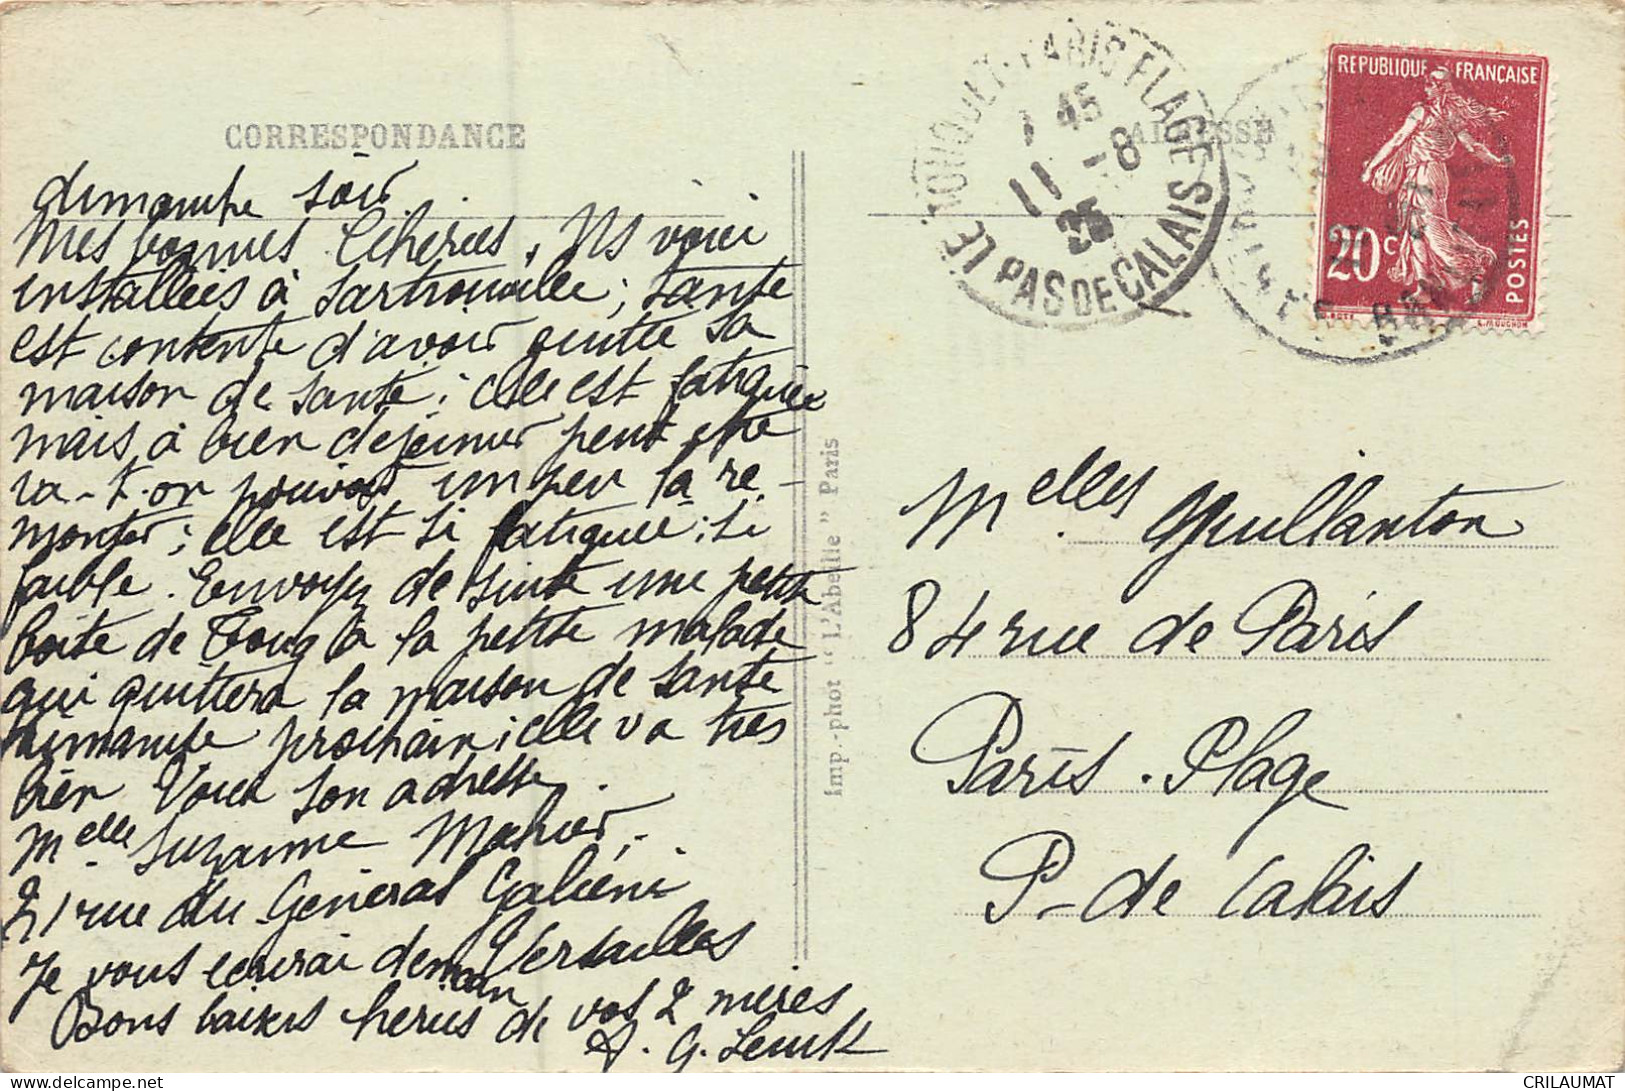 CORRESPONDANCE
dimanche soir
Mes bonnes Chéries, Ns voici
installées à Sartrouville; Sante
est contente d'avoir quitté sa
maison de santé; elle est fatiguée
mais à bien déjeuner peut etre
va-t-on pouvoir un peu la re-
monter; elle est si fatiguée; si
faible. Envoyez de suite une petite
boite de à la petite malade
qui quittera la maison de santé
dimanche prochain; elle va très
bien Voici son adresse.
Melle Suzanne Mahier,
21 rue du Général Galiéni
Versailles
Je vous écrirai demain
Bons baisers chéries de vos 2 mères
G.
Imp.-phot "L'Abeille" Paris
ADRESSE
LE TOUQUET-PARIS PLAGE
PAS DE CALAIS
1 45
11 -8
REPUBLIQUE FRANÇAISE
20c
POSTES
L. MOUCHON
Melles Guillanton
84 rue de Paris
Paris-Plage
P-de Calais
delcampe.net
CRILAUMAT